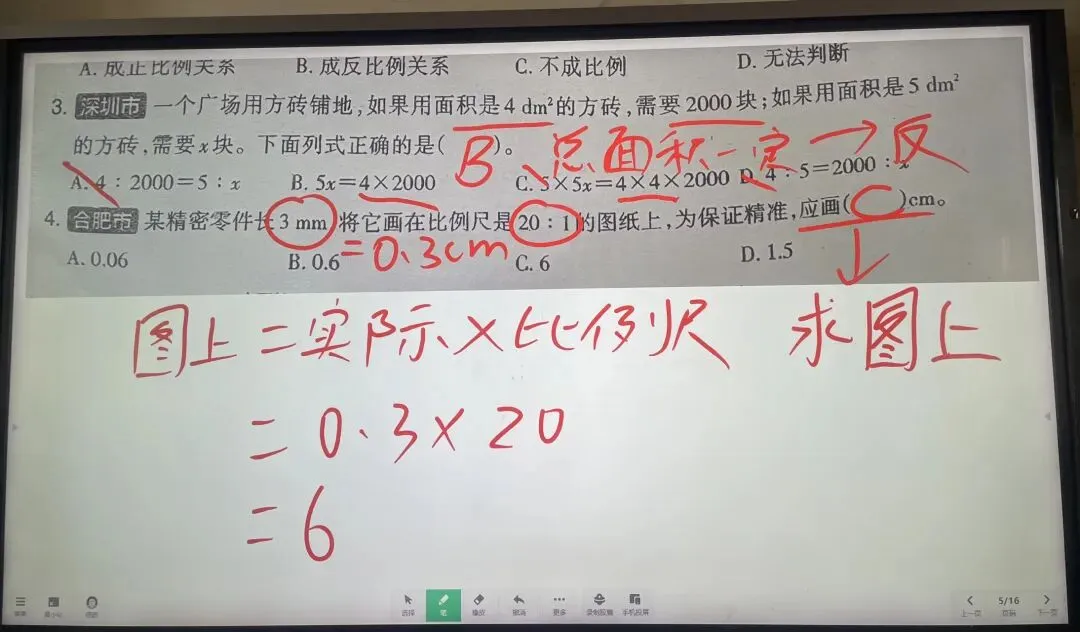 A. 成正比例关系 B. 成反比例关系 C. 不成比例 D. 无法判断
3. 深圳市 一个广场用方砖铺地，如果用面积是 4 dm²的方砖，需要 2000 块；如果用面积是 5 dm²
的方砖，需要 x 块。下面列式正确的是( B )。 总面积一定→反
A. 4∶2000=5∶x B. 5x=4×2000 C. 5×5x=4×4×2000 D. 4∶5=2000∶x
4. 合肥市 某精密零件长 3 mm，将它画在比例尺是 20∶1 的图纸上，为保证精准，应画( )cm。
=0.3cm
A. 0.06 B. 0.6 C. 6 D. 1.5
图上=实际×比例尺 求图上
=0.3×20
=6
选择 笔 橡皮 撤销 更多 录制胶囊 手机投屏
上一页 5/16 下一页